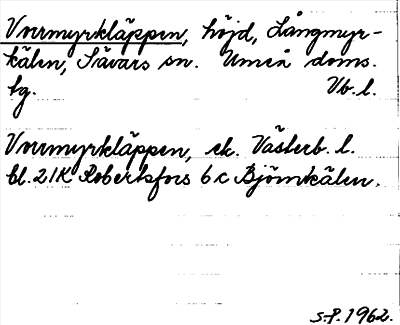 Vormyrkläppen, höjd, Långmyr-
kälen, Sävars sn. Umeå doms.
hg. Vb. l.
Vormyrkläppen, ek. Västerb. l.
bl. 21K Robertsfors 6 c Björnkälen.
S.P. 1962.